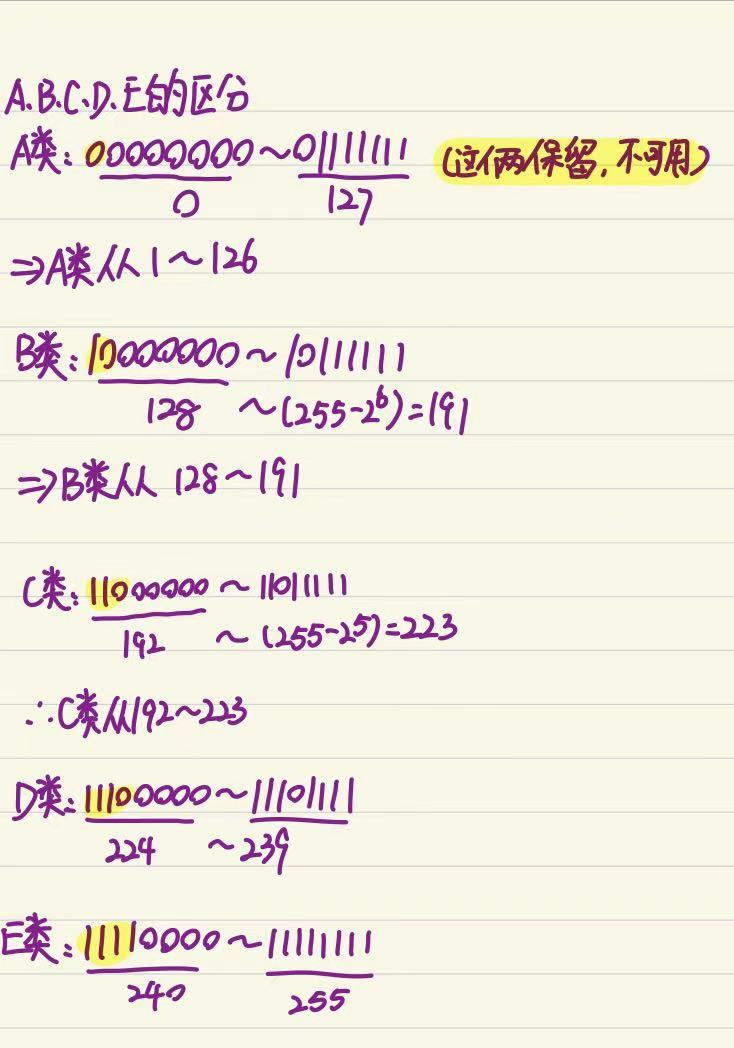 A.B.C.D.E的区分
A类: 00000000～01111111 (这俩保留,不可用)
0 127
⇒A类从1～126
B类: 10000000～10111111
128 ～(255-2⁶)=191
⇒B类从 128～191
C类: 11000000～11011111
192 ～(255-2⁵)=223
∴C类从192～223
D类: 11100000～11101111
224 ～239
E类: 11110000～11111111
240 255